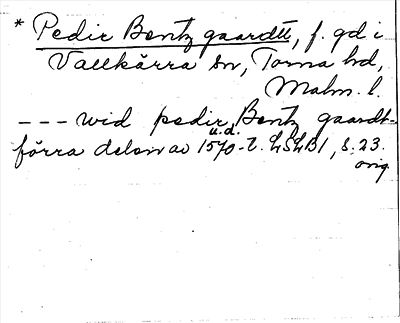 * Pedir Bentz gaardtt, f. gd i
Vallkärra sn, Torna hd,
Malm. l.
--- wid pedir Bentz gaardt-
u.d.
förra delen av 1570-t. LSLB1, s. 23.
orig.